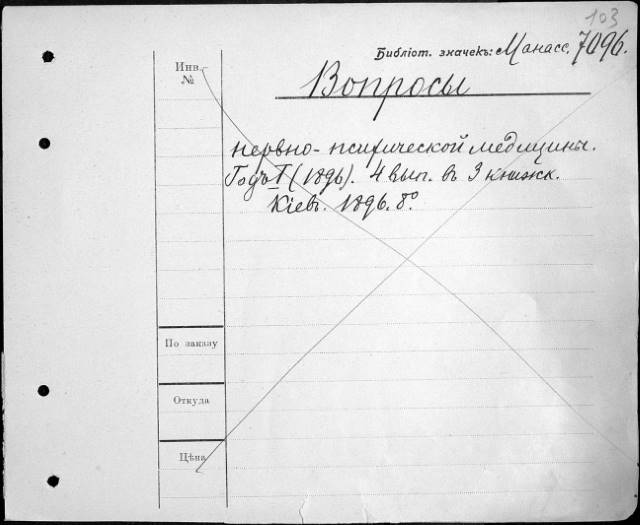 103
Библіот. значекъ: Манасс. 7096.
Инв.
№
Вопросы
нервно-психической медицины.
Годъ I (1896). 4 вып. въ 3 книжк.
Кіевъ. 1896. 8°.
По заказу
Откуда
Цѣна